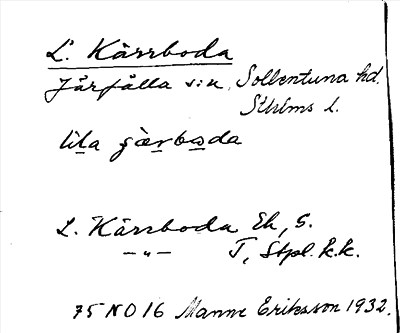 L. Kärrboda
Järfälla s:n, Sollentuna hd.
Sthlms l.
lila çærboda
L. Kärrboda Ek, S.
— " — T, Stpl. k.k.
75 NO 16 Manne Eriksson 1932.